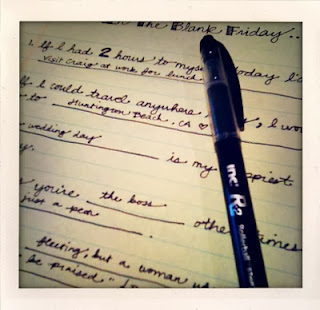 The Blank Friday..
1. If I had 2 hours to myself today I'd
visit Craig at work for lunch
If I could travel anywhere, I wo
to Huntington Beach, CA ♡
wedding day is my happiest
y.
you're the boss other times
just a pea
fleeting, but a woman
be praised"
inc. R2 Rollerball